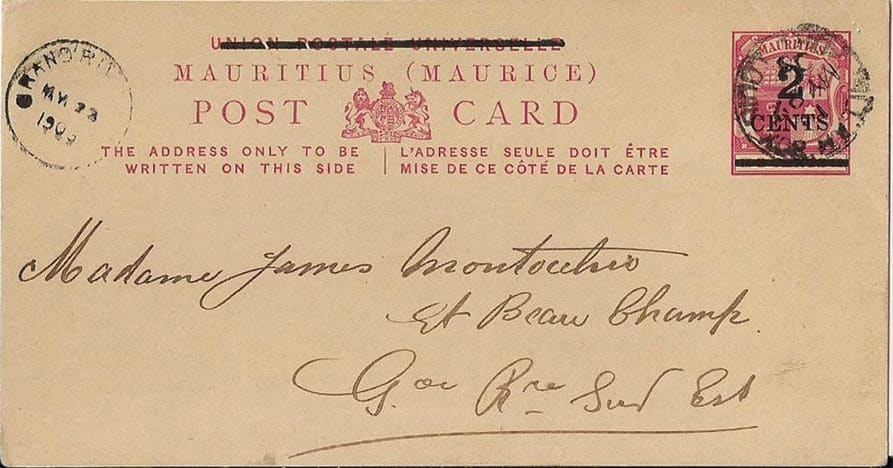 UNION POSTALE UNIVERSELLE
MAURITIUS (MAURICE)
POST CARD
THE ADDRESS ONLY TO BE
WRITTEN ON THIS SIDE
L'ADRESSE SEULE DOIT ÊTRE
MISE DE CE CÔTÉ DE LA CARTE
MAURITIUS
2
CENTS
GRAND
MY 23
1909
Madame James
Et Beau Champ.
Gde Rre Sud Est